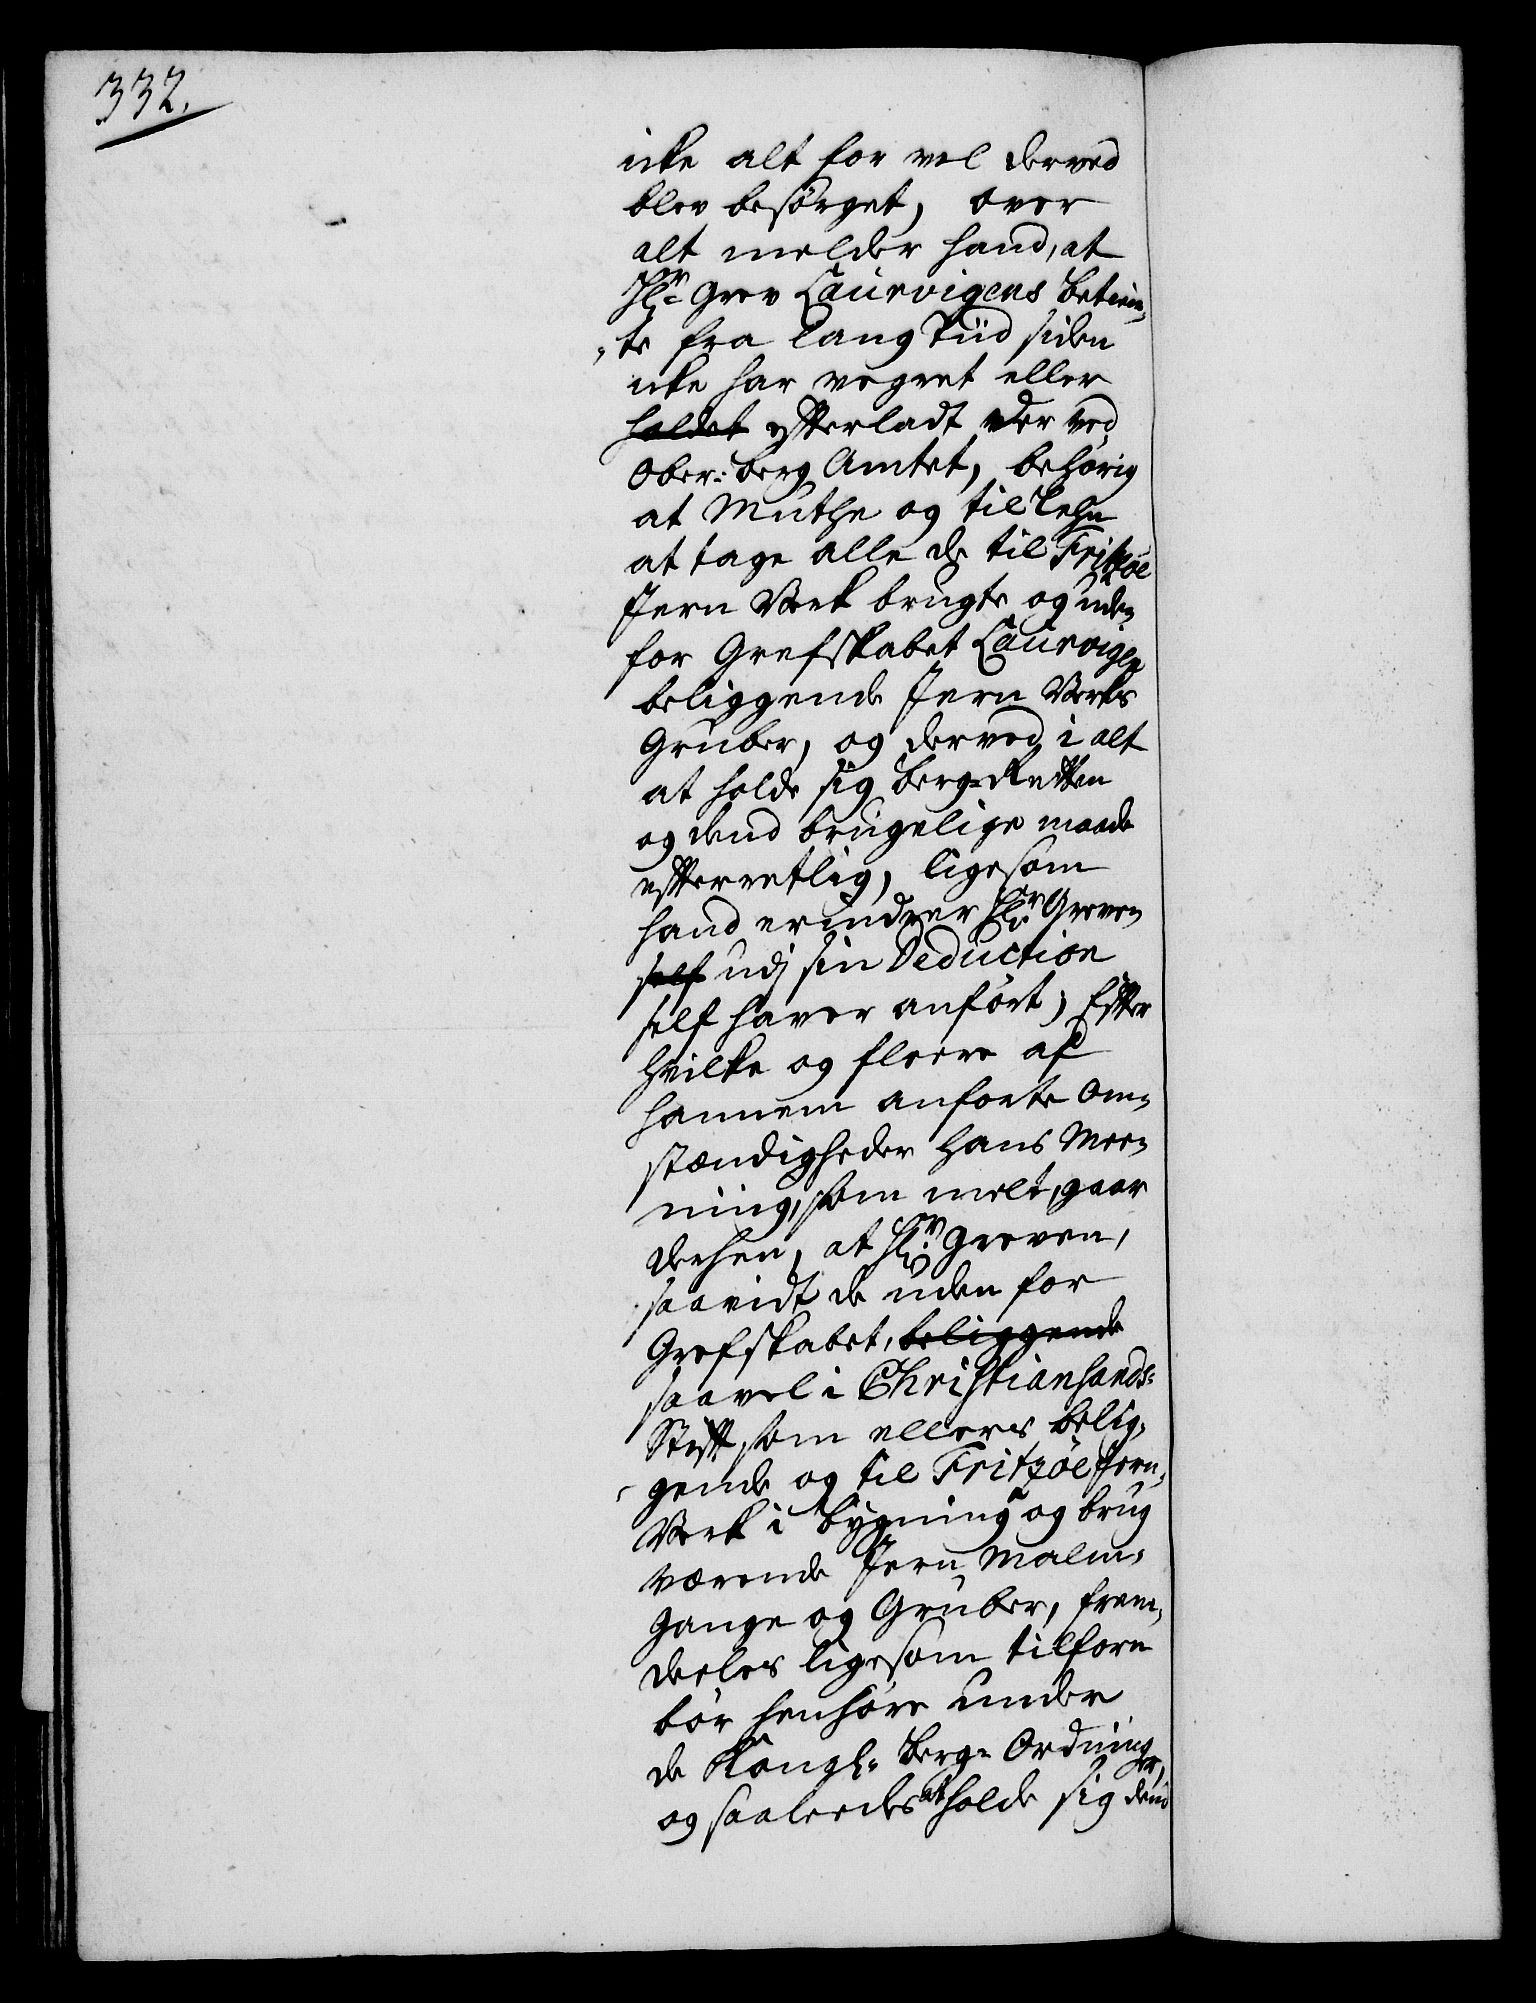 332.
icke alt for vel derved
blev besørget, over
alt melder hand, at
Hr. Grev Laurvigens betien„
„te fra lang Tiid siden
icke har vegret eller
holdet efterladt der ved
Ober=Berg Amtet, behørig
at Muthe og til Lehn
at tage alle de til Fritzøe
Jern Verk brugte og uden
for Grefskabet Laurvigen
beliggende Jern Verks
Gruber, og derved i alt
at holde sig Berg=Retten
og dend brugelige maade
efterretlig, ligesom
hand erindrer Hr. Greven
self udj sin Deduction
self haver anført; Efter
hvilke og fleere af
hannem anførte Om„
stændigheder hans Mee„
ning, som melt, gaar
derhen, at Hr. Greven,
saavidt de uden for
Grefskabet, beliggende
saavel i Christiansands=
Stift, som ellers belig„
gende og til Fritzøe Jern„
Verk i bygning og brug
værende Jern Malm„
Gange og Gruber, frem„
deeles ligesom tilforn
bør henhøre under
de Kongl. Berg=Ordninger,
og saaledes at holde sig dend